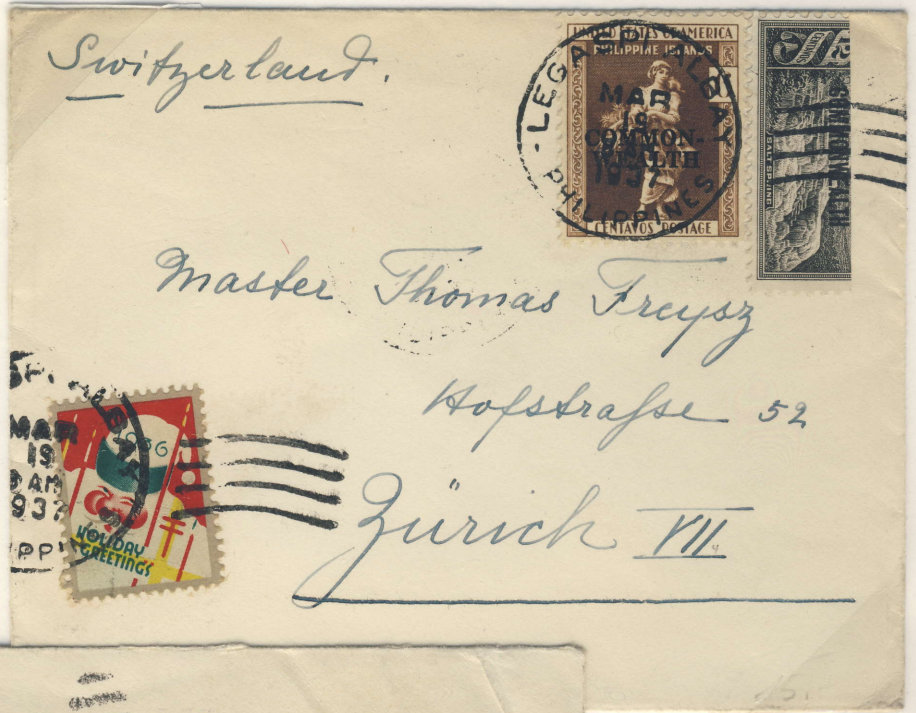 Switzerland.
UNITED STATES OF AMERICA
PHILIPPINE ISLANDS
COMMON-
WEALTH
CENTAVOS POSTAGE
COMMONWEALTH
SALT SPRING
LEGASPI ALBAY
MAR
19
1937
PHILIPPINES
Master Thomas Freysz
Hofstraſse 52
Zürich VII
MAR
19
9 AM
1937
1936
HOLIDAY
GREETINGS